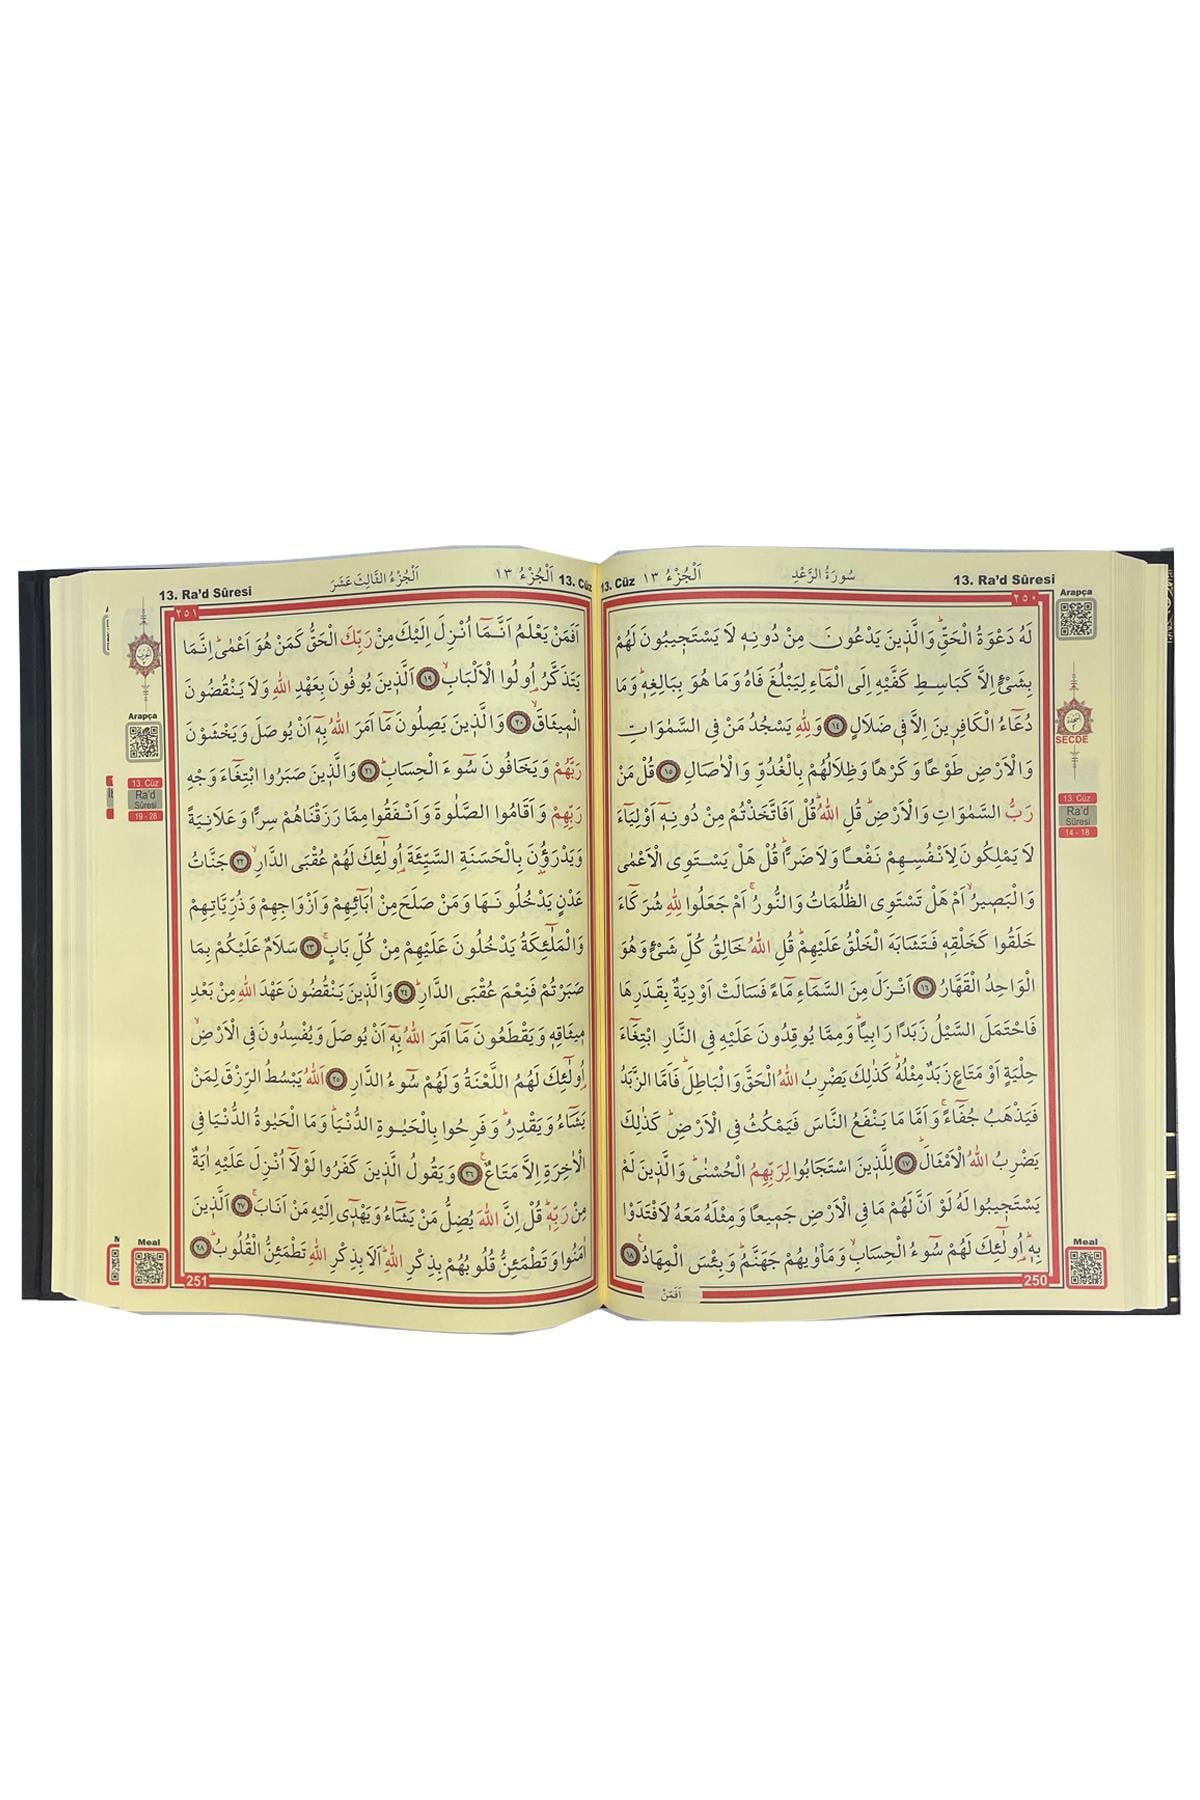 13. Ra'd Sûresi
سُورَةُ الرَّعْدِ
اَلْجُزْءُ ١٣
13. Cüz
٢٥٠
لَهُ دَعْوَةُ الْحَقِّۜ وَالَّذ۪ينَ يَدْعُونَ مِنْ دُونِه۪ لَا يَسْتَج۪يبُونَ لَهُمْ
بِشَيْءٍ اِلَّا كَبَاسِطِ كَفَّيْهِ اِلَى الْمَٓاءِ لِيَبْلُغَ فَاهُ وَمَا هُوَ بِبَالِغِه۪ۜ وَمَا
دُعَٓاءُ الْكَافِر۪ينَ اِلَّا ف۪ي ضَلَالٍ ﴿١٤﴾ وَلِلّٰهِ يَسْجُدُ مَنْ فِي السَّمٰوَاتِ
وَالْاَرْضِ طَوْعًا وَكَرْهًا وَظِلَالُهُمْ بِالْغُدُوِّ وَالْاٰصَالِ ﴿١٥﴾ قُلْ مَنْ
رَبُّ السَّمٰوَاتِ وَالْاَرْضِۜ قُلِ اللّٰهُۜ قُلْ اَفَاتَّخَذْتُمْ مِنْ دُونِه۪ٓ اَوْلِيَٓاءَ
لَا يَمْلِكُونَ لِاَنْفُسِهِمْ نَفْعًا وَلَا ضَرًّاۜ قُلْ هَلْ يَسْتَوِي الْاَعْمٰى
وَالْبَص۪يرُۙ اَمْ هَلْ تَسْتَوِي الظُّلُمَاتُ وَالنُّورُۚ اَمْ جَعَلُوا لِلّٰهِ شُرَكَٓاءَ
خَلَقُوا كَخَلْقِه۪ فَتَشَابَهَ الْخَلْقُ عَلَيْهِمْۜ قُلِ اللّٰهُ خَالِقُ كُلِّ شَيْءٍ وَهُوَ
الْوَاحِدُ الْقَهَّارُ ﴿١٦﴾ اَنْزَلَ مِنَ السَّمَٓاءِ مَٓاءً فَسَالَتْ اَوْدِيَةٌ بِقَدَرِهَا
فَاحْتَمَلَ السَّيْلُ زَبَدًا رَابِيًاۜ وَمِمَّا يُوقِدُونَ عَلَيْهِ فِي النَّارِ ابْتِغَٓاءَ
حِلْيَةٍ اَوْ مَتَاعٍ زَبَدٌ مِثْلُهُۜ كَذٰلِكَ يَضْرِبُ اللّٰهُ الْحَقَّ وَالْبَاطِلَۜ فَاَمَّا الزَّبَدُ
فَيَذْهَبُ جُفَٓاءًۚ وَاَمَّا مَا يَنْفَعُ النَّاسَ فَيَمْكُثُ فِي الْاَرْضِۜ كَذٰلِكَ
يَضْرِبُ اللّٰهُ الْاَمْثَالَۜ ﴿١٧﴾ لِلَّذ۪ينَ اسْتَجَابُوا لِرَبِّهِمُ الْحُسْنٰىۜ وَالَّذ۪ينَ لَمْ
يَسْتَج۪يبُوا لَهُ لَوْ اَنَّ لَهُمْ مَا فِي الْاَرْضِ جَم۪يعًا وَمِثْلَهُ مَعَهُ لَافْتَدَوْا
بِه۪ۜ اُو۬لٰٓئِكَ لَهُمْ سُٓوءُ الْحِسَابِۙ وَمَأْوٰيهُمْ جَهَنَّمُۜ وَبِئْسَ الْمِهَادُ۟ ﴿١٨﴾
250
اَفَمَنْ
Arapça
SECDE
13. Cüz
Ra'd
Sûresi
14 - 18
Meal
13. Cüz
اَلْجُزْءُ ١٣
اَلْجُزْءُ الثَّالِثَ عَشَرَ
13. Ra'd Sûresi
٢٥١
اَفَمَنْ يَعْلَمُ اَنَّمَٓا اُنْزِلَ اِلَيْكَ مِنْ رَبِّكَ الْحَقُّ كَمَنْ هُوَ اَعْمٰىۜ اِنَّمَا
يَتَذَكَّرُ اُو۬لُوا الْاَلْبَابِۙ ﴿١٩﴾ اَلَّذ۪ينَ يُوفُونَ بِعَهْدِ اللّٰهِ وَلَا يَنْقُضُونَ
الْم۪يثَاقَۙ ﴿٢٠﴾ وَالَّذ۪ينَ يَصِلُونَ مَٓا اَمَرَ اللّٰهُ بِه۪ٓ اَنْ يُوصَلَ وَيَخْشَوْنَ
رَبَّهُمْ وَيَخَافُونَ سُٓوءَ الْحِسَابِۜ ﴿٢١﴾ وَالَّذ۪ينَ صَبَرُوا ابْتِغَٓاءَ وَجْهِ
رَبِّهِمْ وَاَقَامُوا الصَّلٰوةَ وَاَنْفَقُوا مِمَّا رَزَقْنَاهُمْ سِرًّا وَعَلَانِيَةً
وَيَدْرَؤُ۫نَ بِالْحَسَنَةِ السَّيِّئَةَ اُو۬لٰٓئِكَ لَهُمْ عُقْبَى الدَّارِۙ ﴿٢٢﴾ جَنَّاتُ
عَدْنٍ يَدْخُلُونَهَا وَمَنْ صَلَحَ مِنْ اٰبَٓائِهِمْ وَاَزْوَاجِهِمْ وَذُرِّيَّاتِهِمْ
وَالْمَلٰٓئِكَةُ يَدْخُلُونَ عَلَيْهِمْ مِنْ كُلِّ بَابٍۚ ﴿٢٣﴾ سَلَامٌ عَلَيْكُمْ بِمَا
صَبَرْتُمْ فَنِعْمَ عُقْبَى الدَّارِۜ ﴿٢٤﴾ وَالَّذ۪ينَ يَنْقُضُونَ عَهْدَ اللّٰهِ مِنْ بَعْدِ
م۪يثَاقِه۪ وَيَقْطَعُونَ مَٓا اَمَرَ اللّٰهُ بِه۪ٓ اَنْ يُوصَلَ وَيُفْسِدُونَ فِي الْاَرْضِۙ
اُو۬لٰٓئِكَ لَهُمُ اللَّعْنَةُ وَلَهُمْ سُٓوءُ الدَّارِ ﴿٢٥﴾ اَللّٰهُ يَبْسُطُ الرِّزْقَ لِمَنْ
يَشَٓاءُ وَيَقْدِرُۜ وَفَرِحُوا بِالْحَيٰوةِ الدُّنْيَاۜ وَمَا الْحَيٰوةُ الدُّنْيَا فِي
الْاٰخِرَةِ اِلَّا مَتَاعٌ۟ ﴿٢٦﴾ وَيَقُولُ الَّذ۪ينَ كَفَرُوا لَوْلَٓا اُنْزِلَ عَلَيْهِ اٰيَةٌ
مِنْ رَبِّه۪ۜ قُلْ اِنَّ اللّٰهَ يُضِلُّ مَنْ يَشَٓاءُ وَيَهْد۪ٓي اِلَيْهِ مَنْ اَنَابَۚ ﴿٢٧﴾ اَلَّذ۪ينَ
اٰمَنُوا وَتَطْمَئِنُّ قُلُوبُهُمْ بِذِكْرِ اللّٰهِۜ اَلَا بِذِكْرِ اللّٰهِ تَطْمَئِنُّ الْقُلُوبُۜ ﴿٢٨﴾
251
Arapça
13. Cüz
Ra'd
Sûresi
19 - 28
Meal